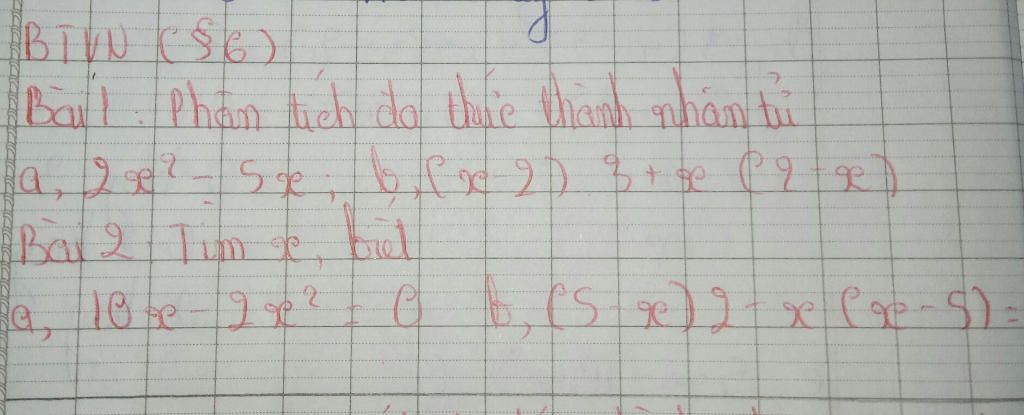 BTVN (§6)
Bài 1: Phân tích đa thức thành nhân tử
a, 2x² - 5x; b, (x-2) 3 + x (2-x)
Bài 2 Tìm x, biết
a, 10x - 2x² = 0 b, (5-x) 2 - x (x-5) =